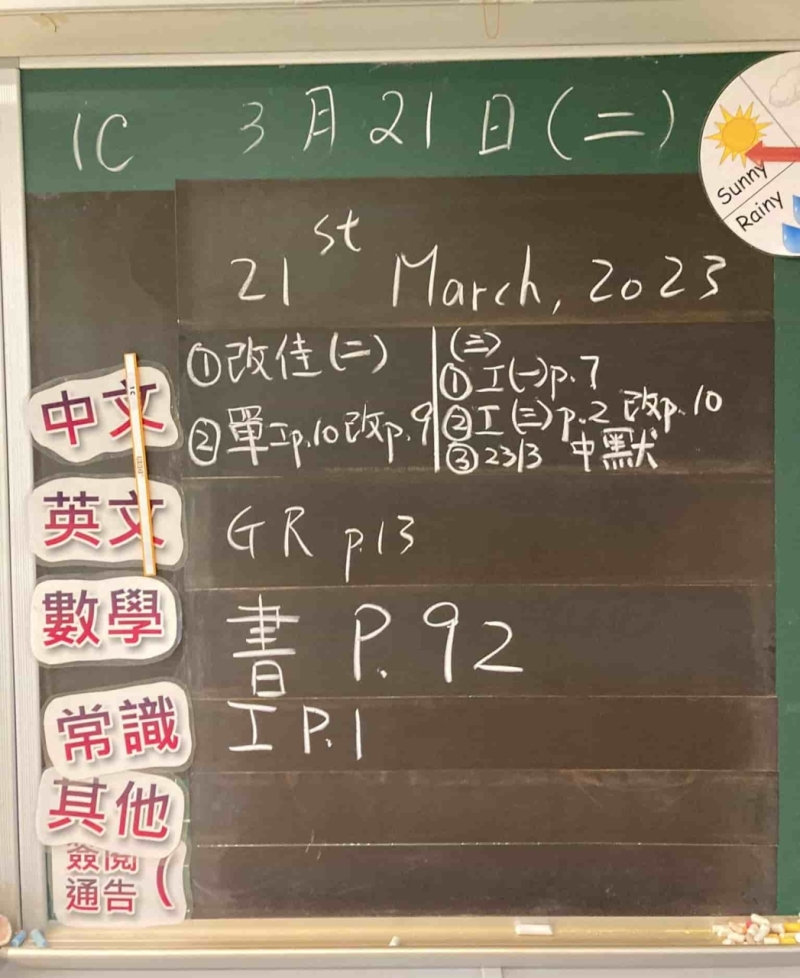 1C 3月21日(二)
Sunny
Rainy
21st March, 2023
中文
①改佳(二)
②單工p.10改p.9
(三)
①工(一)p.7
②工(三)p.2 改p.10
③23/3 中默
英文
GR p.13
數學
書 P.92
常識
工 P.1
其他
簽閱
通告(